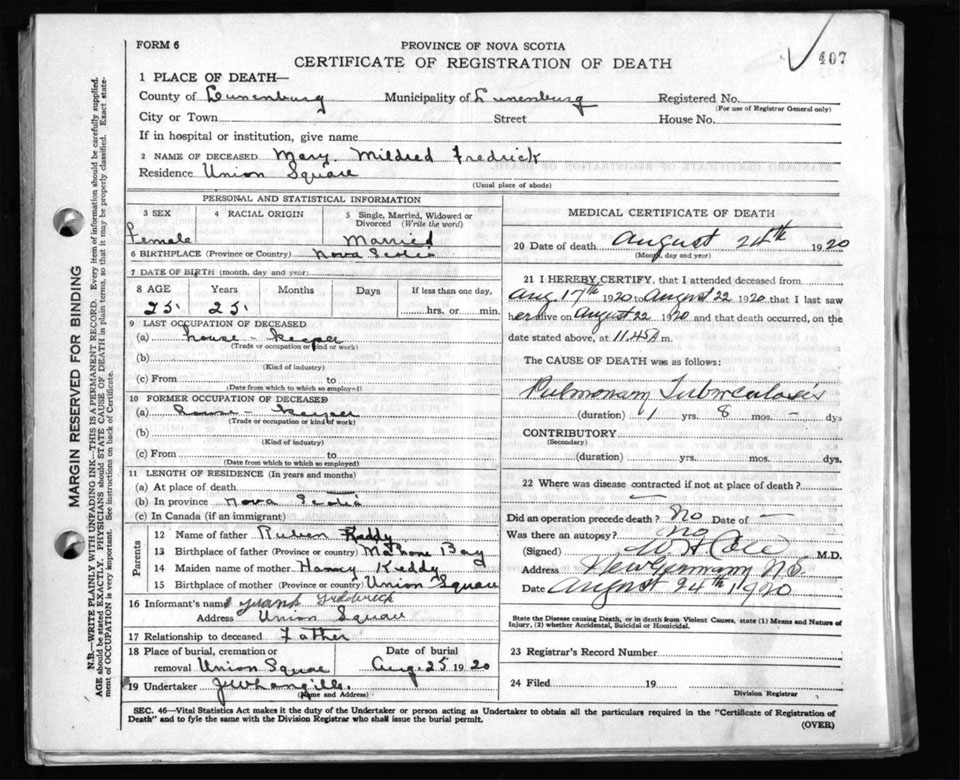 407
FORM 6
PROVINCE OF NOVA SCOTIA
CERTIFICATE OF REGISTRATION OF DEATH
1 PLACE OF DEATH—
County of Lunenburg Municipality of Lunenburg Registered No.
(For use of Registrar General only)
City or Town Street House No.
If in hospital or institution, give name
2 NAME OF DECEASED Mary Mildred Fredrick
Residence Union Square
(Usual place of abode)
PERSONAL AND STATISTICAL INFORMATION
3 SEX 4 RACIAL ORIGIN 5 Single, Married, Widowed or Divorced (Write the word)
Female Married
6 BIRTHPLACE (Province or Country) Nova Scotia
7 DATE OF BIRTH (month, day and year)
8 AGE Years Months Days If less than one day,
25 25 hrs. or min.
9 LAST OCCUPATION OF DECEASED
(a) house-keeper
(Trade or occupation or kind or work)
(b)
(Kind of industry)
(c) From to
(Date from which to which so employed)
10 FORMER OCCUPATION OF DECEASED
(a) house-keeper
(Trade or occupation or kind of work)
(b)
(Kind of industry)
(c) From to
(Date from which to which so employed)
11 LENGTH OF RESIDENCE (In years and months)
(a) At place of death
(b) In province Nova Scotia
(c) In Canada (if an immigrant)
Parents
12 Name of father Ruben Keddy
13 Birthplace of father (Province or country) Mahone Bay
14 Maiden name of mother Keddy
15 Birthplace of mother (Province or country) Union Square
16 Informant's name Fredrick
Address Union Square
17 Relationship to deceased Father
18 Place of burial, cremation or removal Union Square Date of burial Aug. 25 1920
19 Undertaker
(Name and Address)
MEDICAL CERTIFICATE OF DEATH
20 Date of death August 24th 1920
(Month, day and year)
21 I HEREBY CERTIFY, that I attended deceased from
Aug. 17th 1920 to August 22 1920 that I last saw
her alive on August 22 1920 and that death occurred, on the
date stated above, at 11.45 A m.
The CAUSE OF DEATH was as follows:
Pulmonary Tuberculosis
(duration) 1 yrs. 8 mos. – dys
CONTRIBUTORY
(Secondary)
(duration) yrs. mos. dys.
22 Where was disease contracted if not at place of death?
—
Did an operation precede death? No Date of —
Was there an autopsy? No
(Signed) M.D.
Address New Germany N.S.
Date August 24th 1920
State the Disease causing Death, or in death from Violent Causes, state (1) Means and Nature of
Injury, (2) whether Accidental, Suicidal or Homicidal.
23 Registrar's Record Number
24 Filed 19
Division Registrar
SEC. 46—Vital Statistics Act makes it the duty of the Undertaker or person acting as Undertaker to obtain all the particulars required in the "Certificate of Registration of
Death" and to fyle the same with the Division Registrar who shall issue the burial permit.
(OVER)
MARGIN RESERVED FOR BINDING
N.B.—WRITE PLAINLY WITH UNFADING INK—THIS IS A PERMANENT RECORD. Every item of information should be carefully supplied.
AGE should be stated EXACTLY. PHYSICIANS should STATE CAUSE OF DEATH in plain terms, so that it may be properly classified. Exact statement
of OCCUPATION is very important. See instructions on back of Certificate.